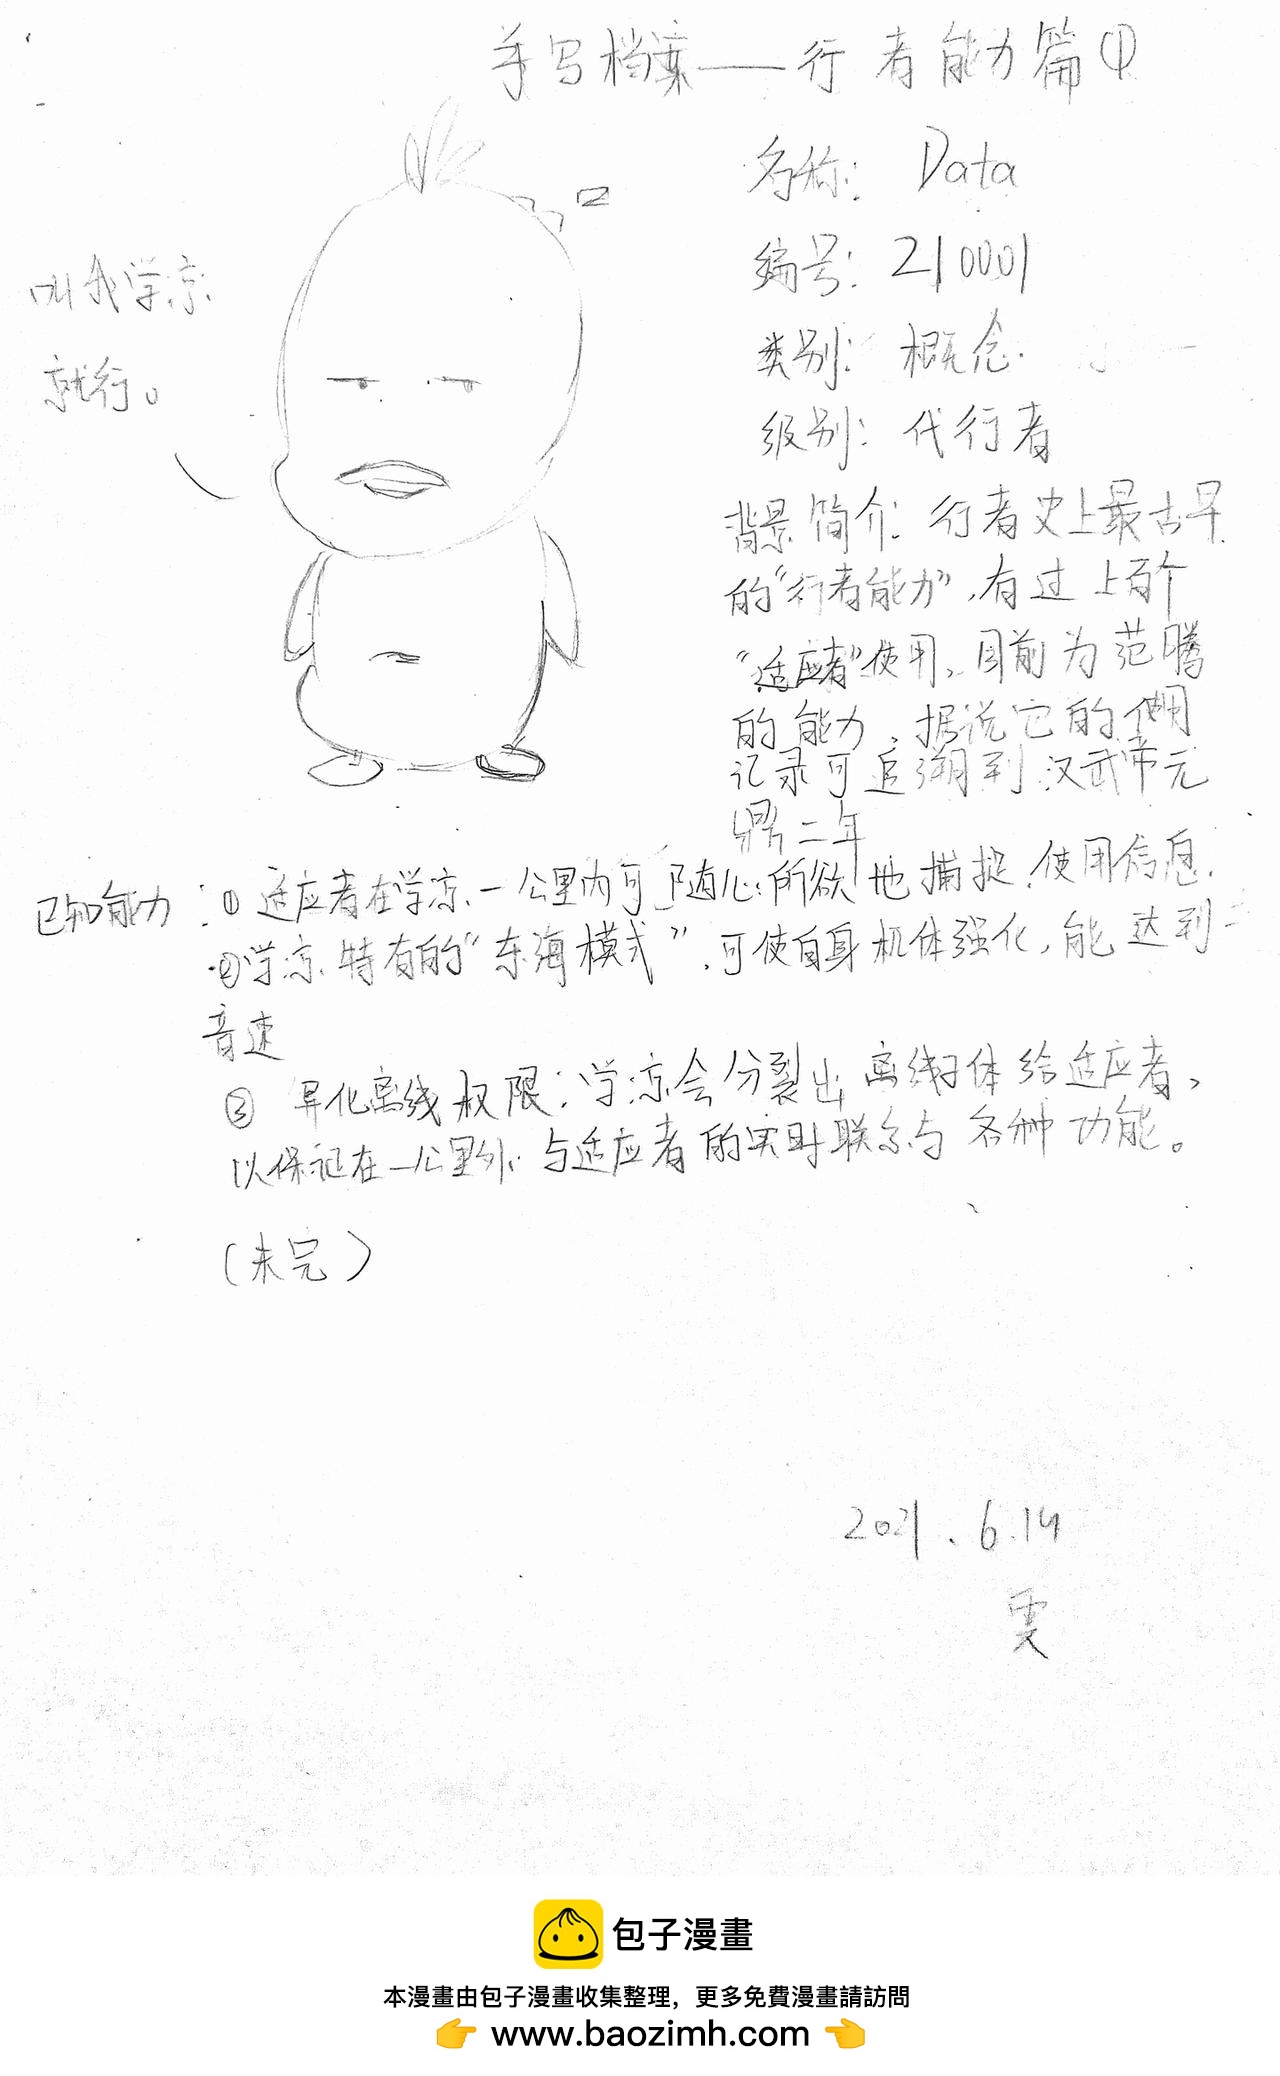 手写档案——行者能力篇①
名称：Data
编号：210001
类别：概念.
级别：代行者
叫我学凉
就行。
背景简介：行者史上最古早
的“行者能力”，有过上百个
“适应者”使用，目前为范腾
的能力，据说它的使用
记录可追溯到汉武帝元
鼎二年
已知能力：①适应者在学凉一公里内可随心所欲地捕捉、使用信息.
②学凉特有的“东海模式”，可使自身机体强化，能达到二
音速
③异化离线权限：学凉会分裂出离线子体给适应者，
以保证在一公里外与适应者的实时联系与各种功能。
（未完）
2021.6.14
雯
包子漫畫
本漫畫由包子漫畫收集整理，更多免費漫畫請訪問
👉 www.baozimh.com 👈